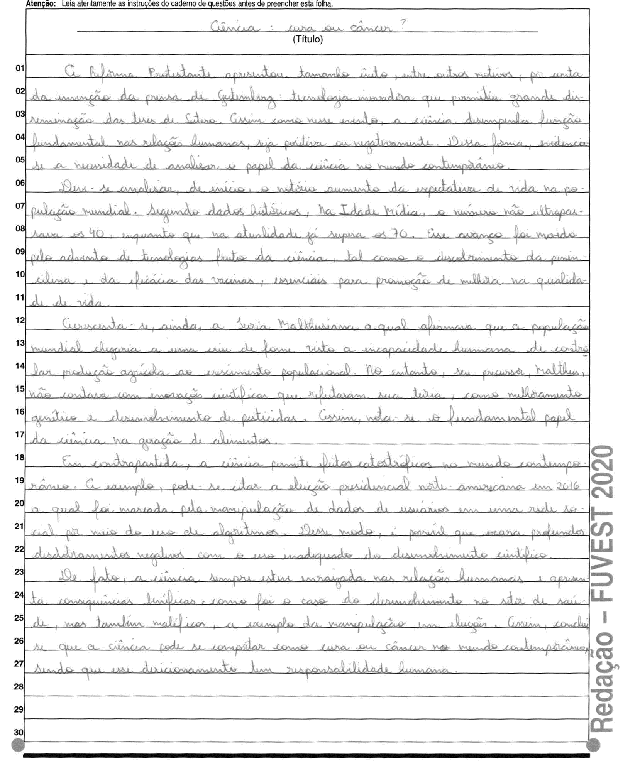 Atenção: Leia atentamente as instruções do caderno de questões antes de preencher esta folha.
Ciência: cura ou câncer?
(Título)
01 A Reforma Protestante apresentou tamanho êxito, entre outros motivos, por conta
02 da invenção da prensa de Gutemberg: tecnologia inovadora que permitiu grande dis-
03 seminação das teses de Lutero. Assim como nesse evento, a ciência desempenha função
04 fundamental nas relações humanas, seja positiva ou negativamente. Dessa forma, evidencia-
05 se a necessidade de analisar o papel da ciência no mundo contemporâneo.
06 Deve-se analisar, de início, o notório aumento da expectativa de vida na po-
07 pulação mundial. Segundo dados históricos, na Idade Média, o número não ultrapas-
08 sava os 40, enquanto que na atualidade já supera os 70. Esse avanço foi movido
09 pelo advento de tecnologias fruto da ciência, tal como o descobrimento da peni-
10 cilina e da eficácia das vacinas, essenciais para promoção de melhora na qualida-
11 de de vida.
12 Acrescenta-se, ainda, a Teoria Malthusiana a qual afirmava que a população
13 mundial chegaria a uma crise de fome, visto a incapacidade humana de contro-
14 lar produção agrícola ao crescimento populacional. No entanto, seu precursor, Malthus,
15 não contava com inovações científicas que refutaram sua teoria, como melhoramento
16 genético e desenvolvimento de pesticidas. Assim, nota-se o fundamental papel
17 da ciência na geração de alimentos.
18 Em contrapartida, a ciência permite efeitos catastróficos no mundo contempo-
19 râneo. A exemplo, pode-se citar a eleição presidencial norte-americana em 2016
20 a qual foi marcada pela manipulação de dados de usuários em uma rede so-
21 cial por meio do uso de algoritmos. Desse modo, é possível que ocorra profundos
22 desdobramentos negativos com o uso inadequado do desenvolvimento científico.
23 De fato, a ciência sempre esteve enraizada nas relações humanas e apresen-
24 ta consequências benéficas, como foi o caso do desenvolvimento no setor de saú-
25 de, mas também maléficas, a exemplo da manipulação em eleições. Assim, conclui-
26 se que a ciência pode se comportar como cura ou câncer no mundo contemporâneo,
27 sendo que esse direcionamento tem responsabilidade humana.
28
29
30
Redação – FUVEST 2020